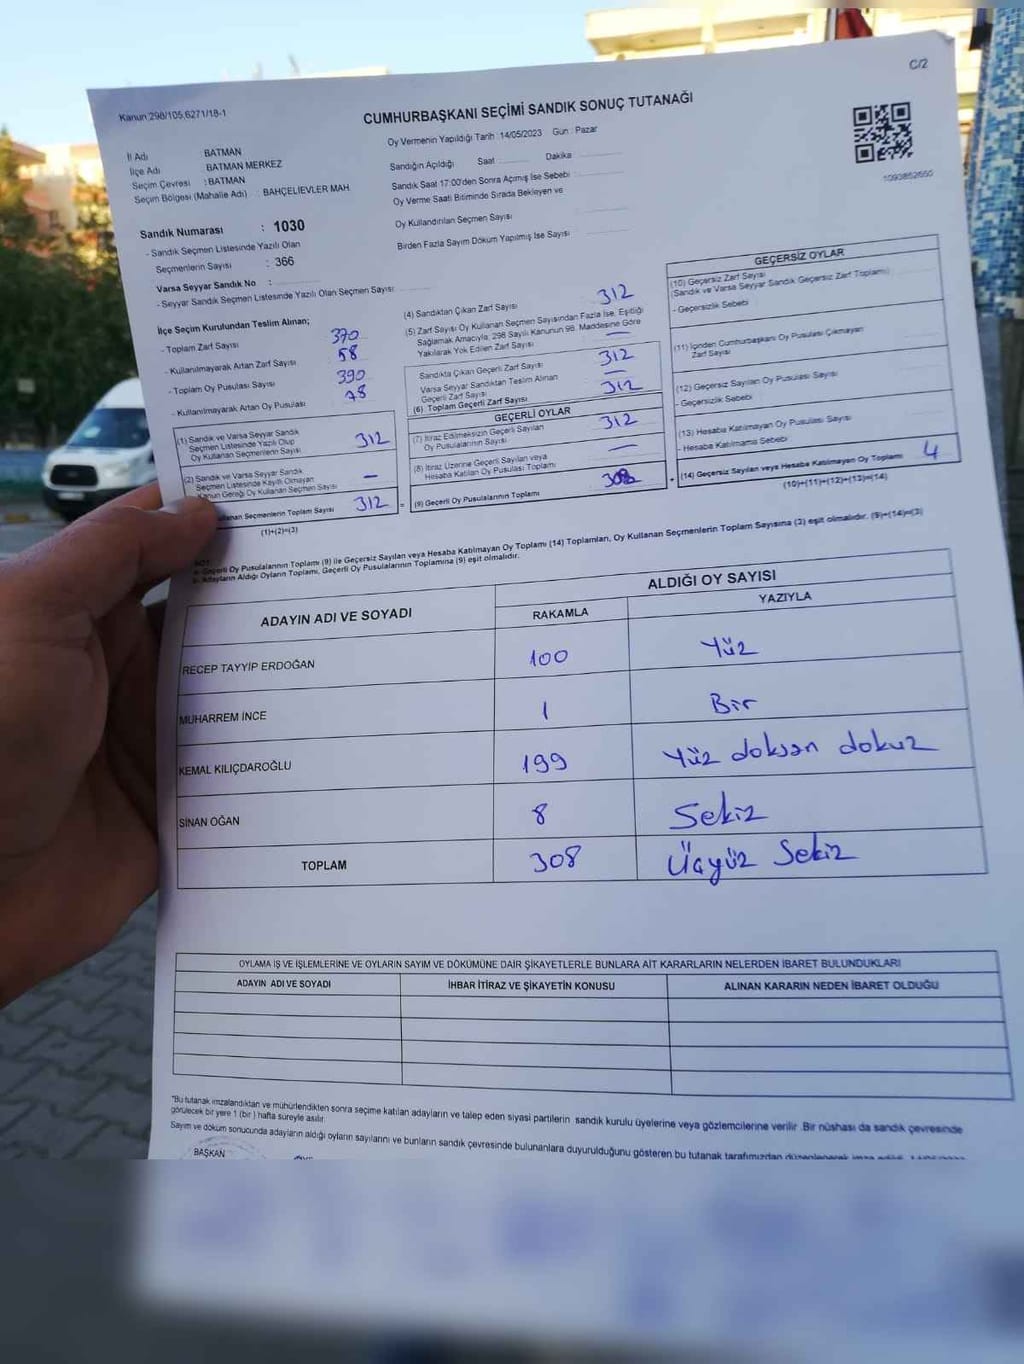 C/2
Kanun 298/105,6271/18-1
CUMHURBAŞKANI SEÇİMİ SANDIK SONUÇ TUTANAĞI
Oy Vermenin Yapıldığı Tarih :14/05/2023 Gün : Pazar
İl Adı BATMAN
İlçe Adı BATMAN MERKEZ
Seçim Çevresi : BATMAN
Seçim Bölgesi (Mahalle Adı) : BAHÇELİEVLER MAH
Sandığın Açıldığı Saat Dakika
Sandık Saat 17:00'den Sonra Açımış İse Sebebi
Oy Verme Saati Bitiminde Sırada Bekleyen ve
Oy Kullandırılan Seçmen Sayısı
Birden Fazla Sayım Döküm Yapılmış İse Sayısı
1093852650
Sandık Numarası : 1030
- Sandık Seçmen Listesinde Yazılı Olan
Seçmenlerin Sayısı : 366
Varsa Seyyar Sandık No :
- Seyyar Sandık Seçmen Listesinde Yazılı Olan Seçmen Sayısı
İlçe Seçim Kurulundan Teslim Alınan;
- Toplam Zarf Sayısı 370
- Kullanılmayarak Artan Zarf Sayısı 58
- Toplam Oy Pusulası Sayısı 390
- Kullanılmayarak Artan Oy Pusulası 78
(1) Sandık ve Varsa Seyyar Sandık
Seçmen Listesinde Yazılı Olup
Oy Kullanan Seçmenlerin Sayısı 312
(2) Sandık ve Varsa Seyyar Sandık
Seçmen Listesinde Kayıtlı Olmayan
Kanun Gereği Oy Kullanan Seçmen Sayısı —
llanan Seçmenlerin Toplam Sayısı 312 =
(1)+(2)=(3)
(4) Sandıktan Çıkan Zarf Sayısı 312
(5) Zarf Sayısı Oy Kullanan Seçmen Sayısından Fazla İse, Eşitliği
Sağlamak Amacıyla, 298 Sayılı Kanunun 98. Maddesine Göre
Yakılarak Yok Edilen Zarf Sayısı —
Sandıkta Çıkan Geçerli Zarf Sayısı 312
Varsa Seyyar Sandıktan Teslim Alınan
Geçerli Zarf Sayısı —
(6) Toplam Geçerli Zarf Sayısı 312
GEÇERLİ OYLAR
(7) İtiraz Edilmeksizin Geçerli Sayılan
Oy Pusulalarının Sayısı 312
(8) İtiraz Üzerine Geçerli Sayılan veya
Hesaba Katılan Oy Pusulası Toplamı —
(9) Geçerli Oy Pusulalarının Toplamı 308 +
GEÇERSİZ OYLAR
(10) Geçersiz Zarf Sayısı
(Sandık ve Varsa Seyyar Sandık Geçersiz Zarf Toplamı)
- Geçersizlik Sebebi
(11) İçinden Cumhurbaşkanı Oy Pusulası Çıkmayan
Zarf Sayısı
(12) Geçersiz Sayılan Oy Pusulası Sayısı
- Geçersizlik Sebebi
(13) Hesaba Katılmayan Oy Pusulası Sayısı
- Hesaba Katılmama Sebebi
(14) Geçersiz Sayılan veya Hesaba Katılmayan Oy Toplamı 4
(10)+(11)+(12)+(13)=(14)
Geçerli Oy Pusulalarının Toplamı (9) ile Geçersiz Sayılan veya Hesaba Katılmayan Oy Toplamı (14) Toplamları, Oy Kullanan Seçmenlerin Toplam Sayısına (3) eşit olmalıdır. (9)+(14)=(3)
Adayların Aldığı Oyların Toplamı, Geçerli Oy Pusulalarının Toplamına (9) eşit olmalıdır.
ADAYIN ADI VE SOYADI ALDIĞI OY SAYISI
RAKAMLA YAZIYLA
RECEP TAYYİP ERDOĞAN 100 Yüz
MUHARREM İNCE 1 Bir
KEMAL KILIÇDAROĞLU 199 Yüz doksan dokuz
SİNAN OĞAN 8 Sekiz
TOPLAM 308 Üçyüz Sekiz
OYLAMA İŞ VE İŞLEMLERİNE VE OYLARIN SAYIM VE DÖKÜMÜNE DAİR ŞİKAYETLERLE BUNLARA AİT KARARLARIN NELERDEN İBARET BULUNDUKLARI
ADAYIN ADI VE SOYADI İHBAR İTİRAZ VE ŞİKAYETİN KONUSU ALINAN KARARIN NEDEN İBARET OLDUĞU
"Bu tutanak imzalandıktan ve mühürlendikten sonra seçime katılan adayların ve talep eden siyasi partilerin sandık kurulu üyelerine veya gözlemcilerine verilir. Bir nüshası da sandık çevresinde
görülecek bir yere 1 (bir) hafta süreyle asılır.
Sayım ve döküm sonucunda adayların aldığı oyların sayılarını ve bunların sandık çevresinde bulunanlara duyurulduğunu gösteren bu tutanak tarafımızdan düzenlenerek imza edildi.
BAŞKAN